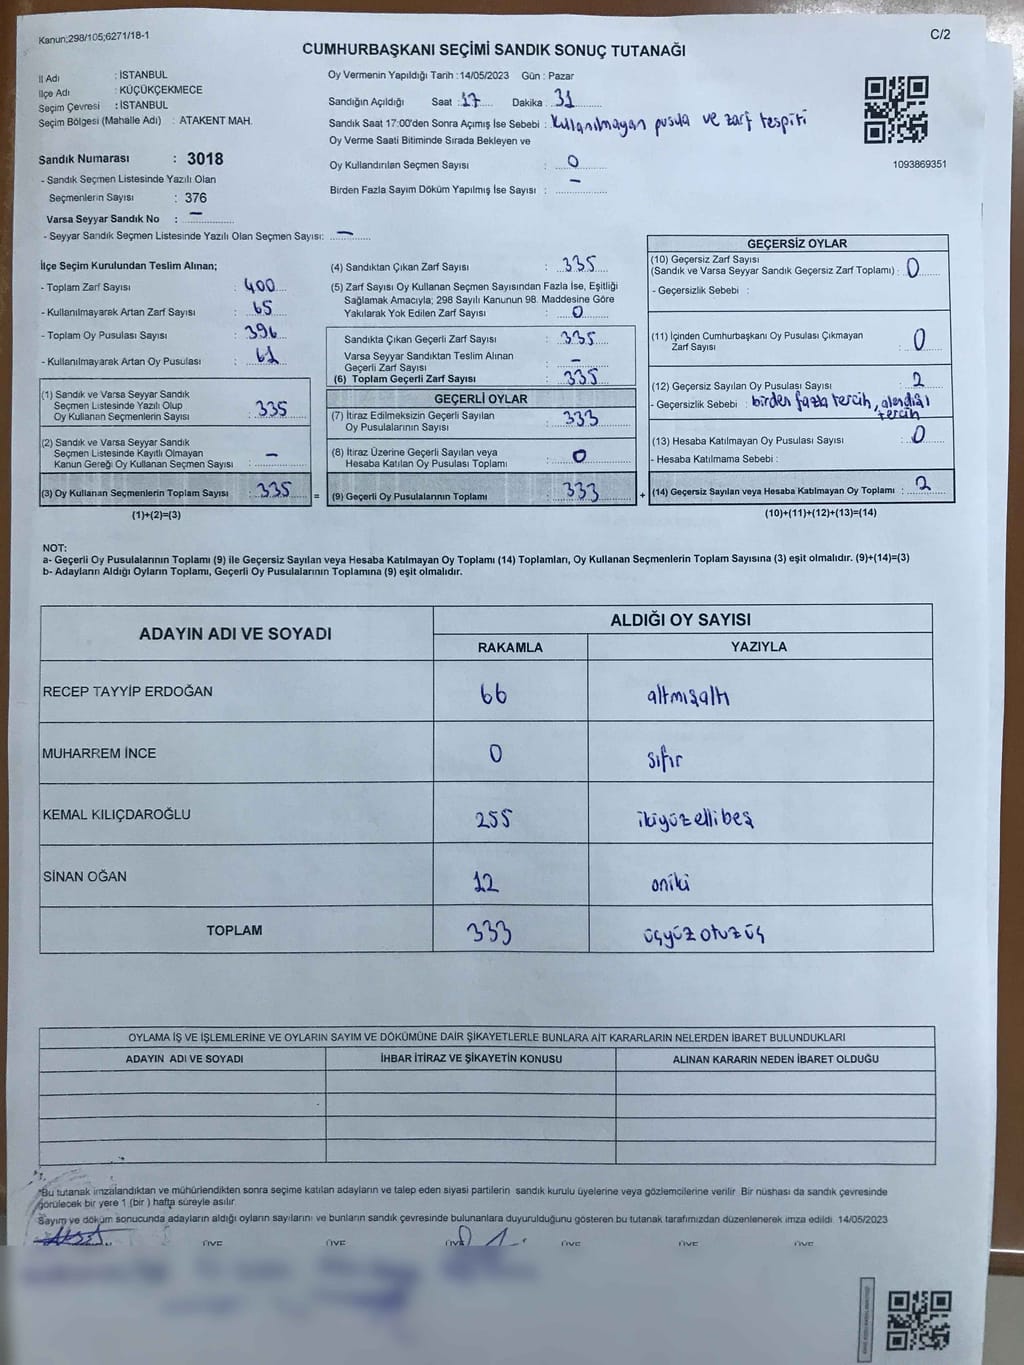 Kanun:298/105;6271/18-1
C/2
CUMHURBAŞKANI SEÇİMİ SANDIK SONUÇ TUTANAĞI
İl Adı : İSTANBUL
İlçe Adı : KÜÇÜKÇEKMECE
Seçim Çevresi : İSTANBUL
Seçim Bölgesi (Mahalle Adı) : ATAKENT MAH.
Sandık Numarası : 3018
- Sandık Seçmen Listesinde Yazılı Olan
Seçmenlerin Sayısı : 376
Varsa Seyyar Sandık No : –
- Seyyar Sandık Seçmen Listesinde Yazılı Olan Seçmen Sayısı: –
Oy Vermenin Yapıldığı Tarih :14/05/2023 Gün : Pazar
Sandığın Açıldığı Saat : 17 Dakika : 31
Sandık Saat 17:00'den Sonra Açımış İse Sebebi : kullanılmayan pusula ve zarf tespiti
Oy Verme Saati Bitiminde Sırada Bekleyen ve
Oy Kullandırılan Seçmen Sayısı : 0
Birden Fazla Sayım Döküm Yapılmış İse Sayısı : –
1093869351
İlçe Seçim Kurulundan Teslim Alınan;
- Toplam Zarf Sayısı : 400
- Kullanılmayarak Artan Zarf Sayısı : 65
- Toplam Oy Pusulası Sayısı : 396
- Kullanılmayarak Artan Oy Pusulası : 61
(1) Sandık ve Varsa Seyyar Sandık
Seçmen Listesinde Yazılı Olup
Oy Kullanan Seçmenlerin Sayısı : 335
(2) Sandık ve Varsa Seyyar Sandık
Seçmen Listesinde Kayıtlı Olmayan
Kanun Gereği Oy Kullanan Seçmen Sayısı : –
(3) Oy Kullanan Seçmenlerin Toplam Sayısı : 335 =
(1)+(2)=(3)
(4) Sandıktan Çıkan Zarf Sayısı : 335
(5) Zarf Sayısı Oy Kullanan Seçmen Sayısından Fazla İse, Eşitliği
Sağlamak Amacıyla; 298 Sayılı Kanunun 98. Maddesine Göre
Yakılarak Yok Edilen Zarf Sayısı : 0
Sandıkta Çıkan Geçerli Zarf Sayısı : 335
Varsa Seyyar Sandıktan Teslim Alınan
Geçerli Zarf Sayısı : –
(6) Toplam Geçerli Zarf Sayısı : 335
GEÇERLİ OYLAR
(7) İtiraz Edilmeksizin Geçerli Sayılan
Oy Pusulalarının Sayısı : 333
(8) İtiraz Üzerine Geçerli Sayılan veya
Hesaba Katılan Oy Pusulası Toplamı : 0
(9) Geçerli Oy Pusulalarının Toplamı : 333 +
GEÇERSİZ OYLAR
(10) Geçersiz Zarf Sayısı
(Sandık ve Varsa Seyyar Sandık Geçersiz Zarf Toplamı) : 0
- Geçersizlik Sebebi :
(11) İçinden Cumhurbaşkanı Oy Pusulası Çıkmayan
Zarf Sayısı : 0
(12) Geçersiz Sayılan Oy Pusulası Sayısı : 2
- Geçersizlik Sebebi : birden fazla tercih,
tercih
(13) Hesaba Katılmayan Oy Pusulası Sayısı : 0
- Hesaba Katılmama Sebebi :
(14) Geçersiz Sayılan veya Hesaba Katılmayan Oy Toplamı : 2
(10)+(11)+(12)+(13)=(14)
NOT:
a- Geçerli Oy Pusulalarının Toplamı (9) ile Geçersiz Sayılan veya Hesaba Katılmayan Oy Toplamı (14) Toplamları, Oy Kullanan Seçmenlerin Toplam Sayısına (3) eşit olmalıdır. (9)+(14)=(3)
b- Adayların Aldığı Oyların Toplamı, Geçerli Oy Pusulalarının Toplamına (9) eşit olmalıdır.
ADAYIN ADI VE SOYADI
ALDIĞI OY SAYISI
RAKAMLA YAZIYLA
RECEP TAYYİP ERDOĞAN 66 altmışaltı
MUHARREM İNCE 0 sıfır
KEMAL KILIÇDAROĞLU 255 ikiyüzellibeş
SİNAN OĞAN 12 oniki
TOPLAM 333 üçyüzotuzüç
OYLAMA İŞ VE İŞLEMLERİNE VE OYLARIN SAYIM VE DÖKÜMÜNE DAİR ŞİKAYETLERLE BUNLARA AİT KARARLARIN NELERDEN İBARET BULUNDUKLARI
ADAYIN ADI VE SOYADI İHBAR İTİRAZ VE ŞİKAYETİN KONUSU ALINAN KARARIN NEDEN İBARET OLDUĞU
*Bu tutanak imzalandıktan ve mühürlendikten sonra seçime katılan adayların ve talep eden siyasi partilerin sandık kurulu üyelerine veya gözlemcilerine verilir. Bir nüshası da sandık çevresinde
görülecek bir yere 1 (bir) hafta süreyle asılır.
Sayım ve döküm sonucunda adayların aldığı oyların sayılarını ve bunların sandık çevresinde bulunanlara duyurulduğunu gösteren bu tutanak tarafımızdan düzenlenerek imza edildi. 14/05/2023
ÜYE ÜYE ÜYE ÜYE ÜYE ÜYE